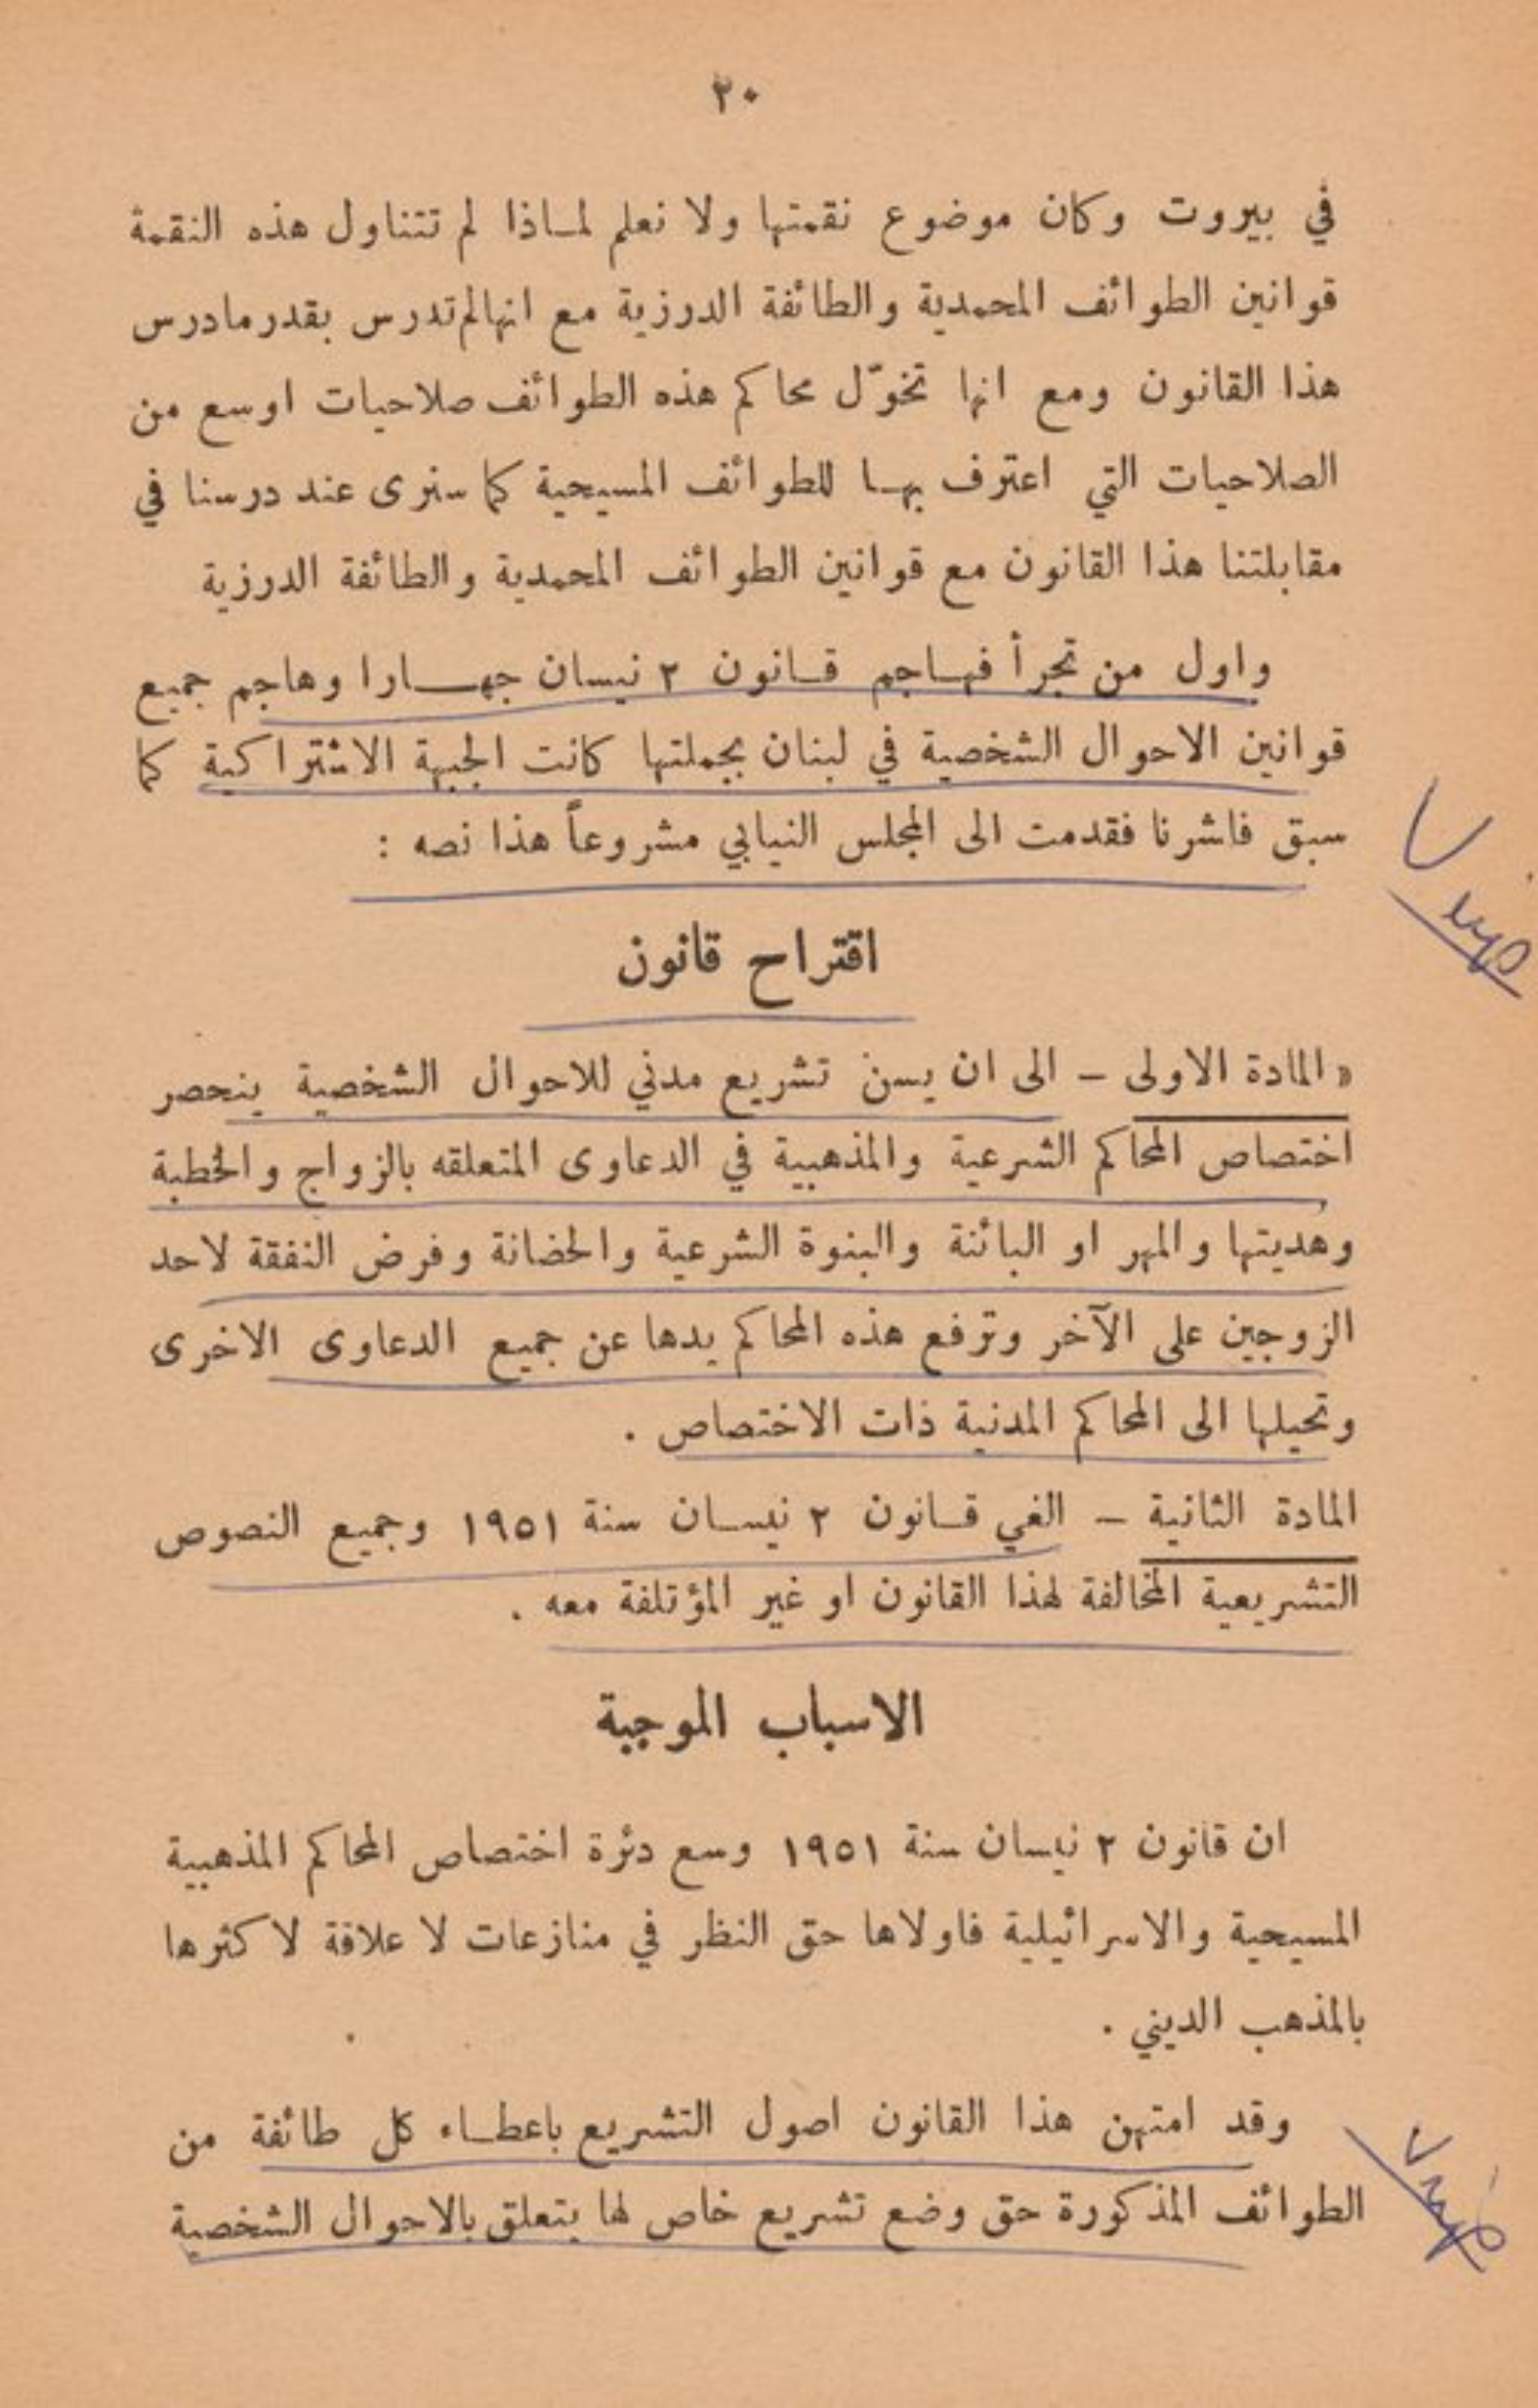 ٢٠
في بيروت وكان موضوع نقمتها ولا نعلم لماذا لم تتناول هذه النقمة
قوانين الطوائف المحمدية والطائفة الدرزية مع انهالم تدرس بقدر مادرس
هذا القانون ومع انها تخوّل محاكم هذه الطوائف صلاحيات اوسع من
الصلاحيات التي اعترف بها للطوائف المسيحية كما سنرى عند درسنا في
مقابلتنا هذا القانون مع قوانين الطوائف المحمدية والطائفة الدرزية
واول من تجرأ فهاجم قانون ٢ نيسان جهارا وهاجم جميع
قوانين الاحوال الشخصية في لبنان بجملتها كانت الجبهة الاشتراكية كما
سبق فاشرنا فقدمت الى المجلس النيابي مشروعاً هذا نصه :
اقتراح قانون
« المادة الاولى – الى ان يسن تشريع مدني للاحوال الشخصية ينحصر
اختصاص المحاكم الشرعية والمذهبية في الدعاوى المتعلقه بالزواج والخطبة
وهديتها والمهر او البائنة والبنوة الشرعية والحضانة وفرض النفقة لاحد
الزوجين على الآخر وترفع هذه المحاكم يدها عن جميع الدعاوى الاخرى
وتحيلها الى المحاكم المدنية ذات الاختصاص .
المادة الثانية – الغي قانون ٢ نيسان سنة ١٩٥١ وجميع النصوص
التشريعية المخالفة لهذا القانون او غير المؤتلفة معه .
الاسباب الموجبة
ان قانون ٢ نيسان سنة ١٩٥١ وسع دئرة اختصاص المحاكم المذهبية
المسيحية والاسرائيلية فاولاها حق النظر في منازعات لا علاقة لاكثرها
بالمذهب الديني .
وقد امتهن هذا القانون اصول التشريع باعطاء كل طائفة من
الطوائف المذكورة حق وضع تشريع خاص لها يتعلق بالاحوال الشخصية